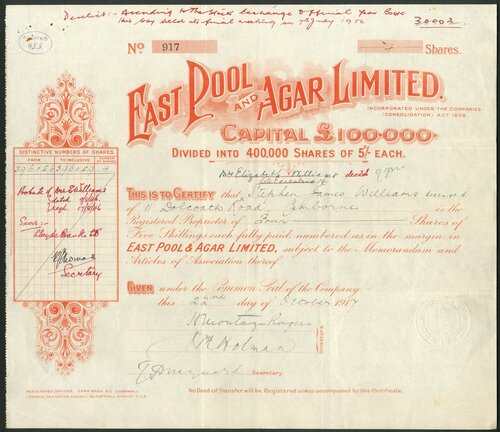 Defunct:- According to the Stock Exchange Official Year Book
this Coy held its final meeting on 7th July 1950.
30003
No 917
4 Shares.
EAST POOL AND AGAR LIMITED.
INCORPORATED UNDER THE COMPANIES
(CONSOLIDATION) ACT 1908.
CAPITAL £100·000·
DIVIDED INTO 400,000 SHARES OF 5/- EACH.
DISTINCTIVE NUMBERS OF SHARES.
FROM TO INCLUSIVE NUMBER OF SHARES
Mrs Elizabeth Williams decd
THIS IS TO CERTIFY that Stephen James Williams
of 11 Dolcoath Road Camborne is the
Registered Proprietor of Four Shares of
Five Shillings each fully paid numbered as in the margin in
EAST POOL & AGAR LIMITED, subject to the Memorandum and
Articles of Association thereof
Probate of Mrs E Williams
dated
regd.
Exors:-
Lloyds Bank Ld
Secretary
GIVEN under the Common Seal of the Company
this 22nd day of October 1917
Montagu Rogers
Holman
Directors
Secretary.
REGISTERED OFFICES, CARN BREA, S.O. CORNWALL
LONDON, TRANSFER AGENCY, 85, CORNHILL AVENUE, E.C.
No Deed of Transfer will be Registered unless accompanied by this Certificate.